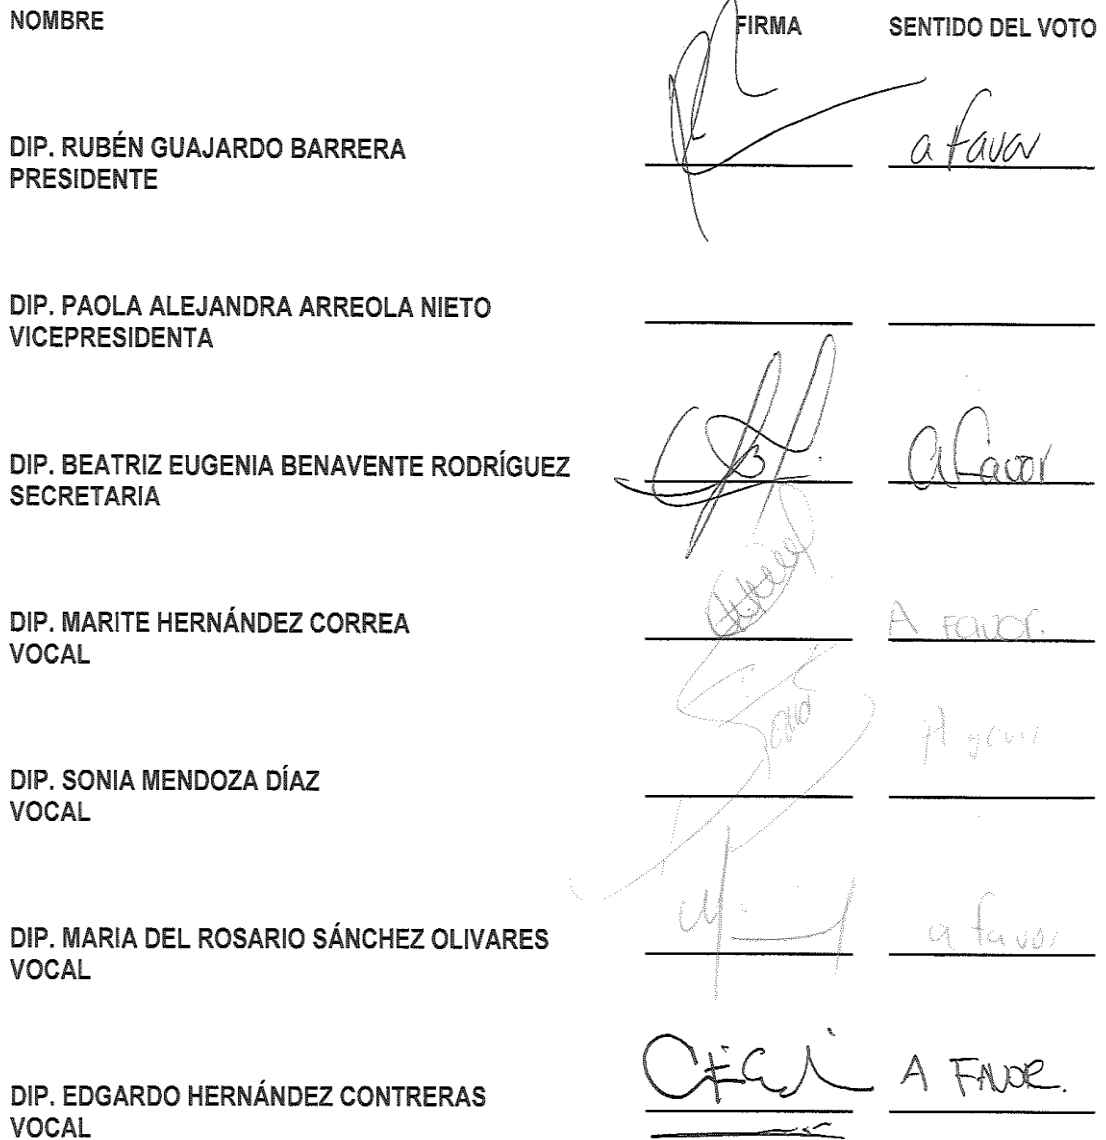 NOMBRE FIRMA SENTIDO DEL VOTO
DIP. RUBÉN GUAJARDO BARRERA a favor
PRESIDENTE
DIP. PAOLA ALEJANDRA ARREOLA NIETO
VICEPRESIDENTA
DIP. BEATRIZ EUGENIA BENAVENTE RODRÍGUEZ a favor
SECRETARIA
DIP. MARITE HERNÁNDEZ CORREA A FAVOR.
VOCAL
DIP. SONIA MENDOZA DÍAZ
VOCAL
DIP. MARIA DEL ROSARIO SÁNCHEZ OLIVARES a favor
VOCAL
DIP. EDGARDO HERNÁNDEZ CONTRERAS A FAVOR.
VOCAL